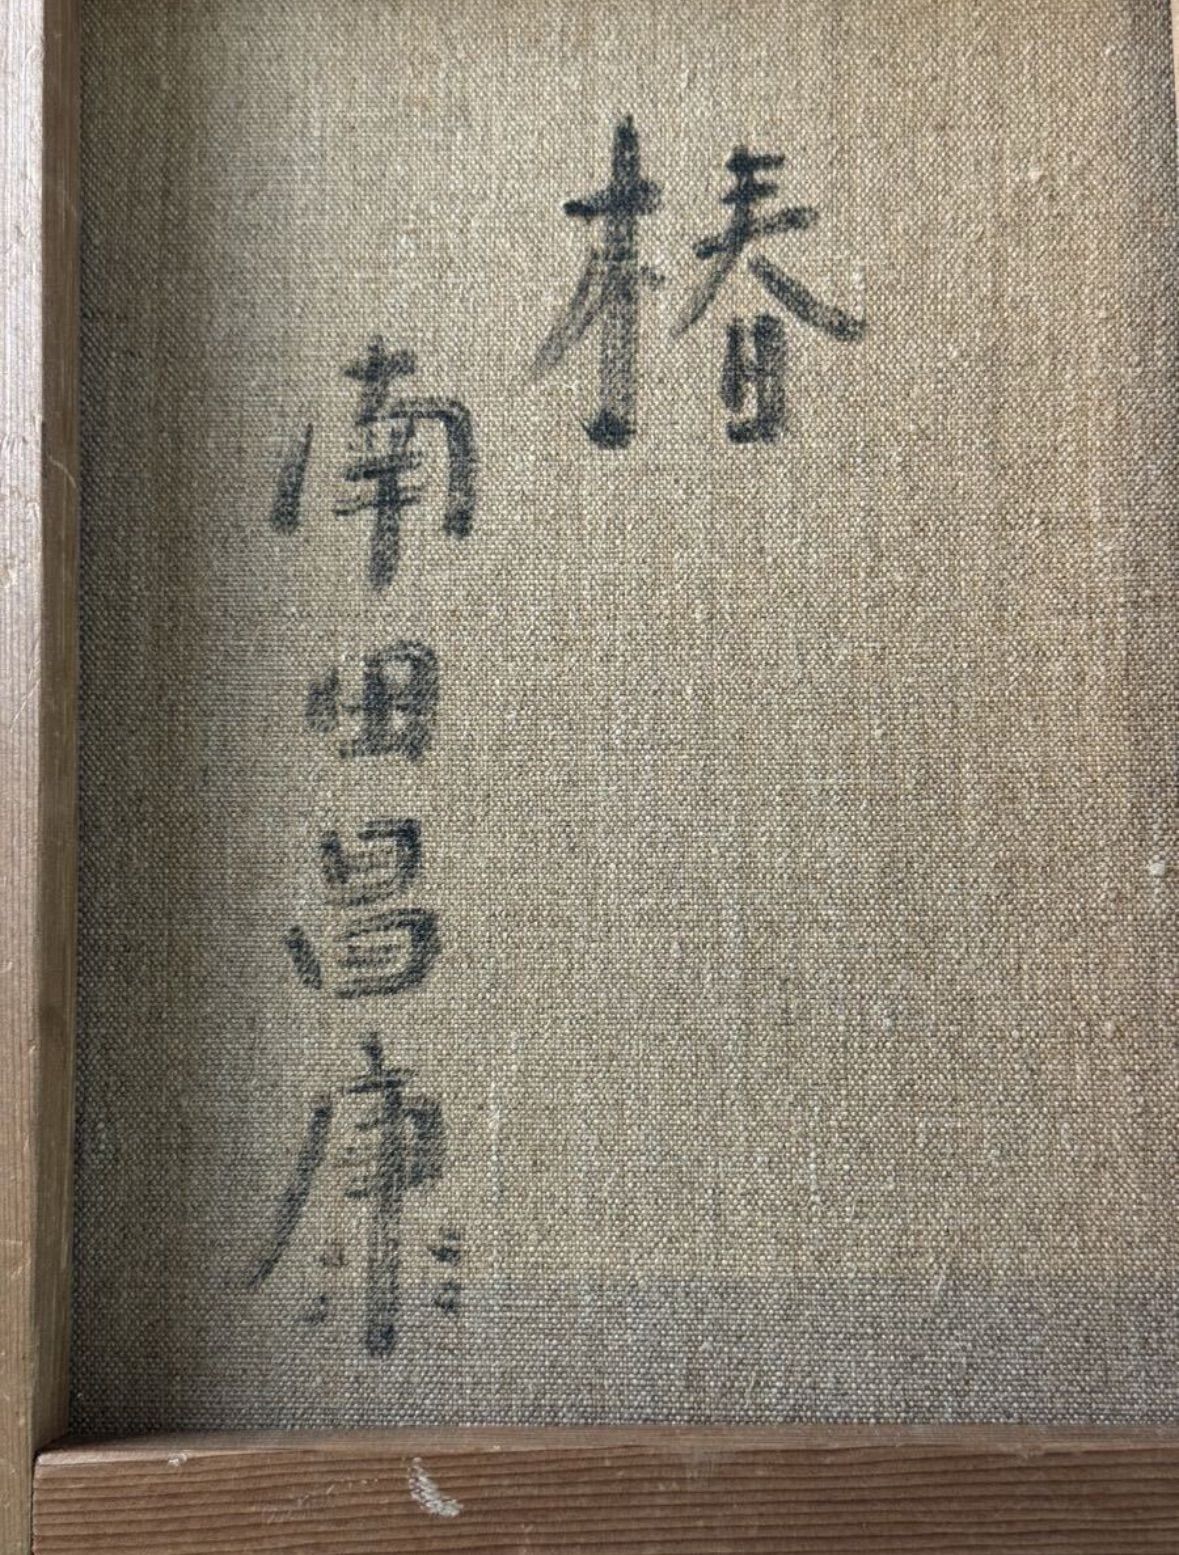 椿
南田昌康